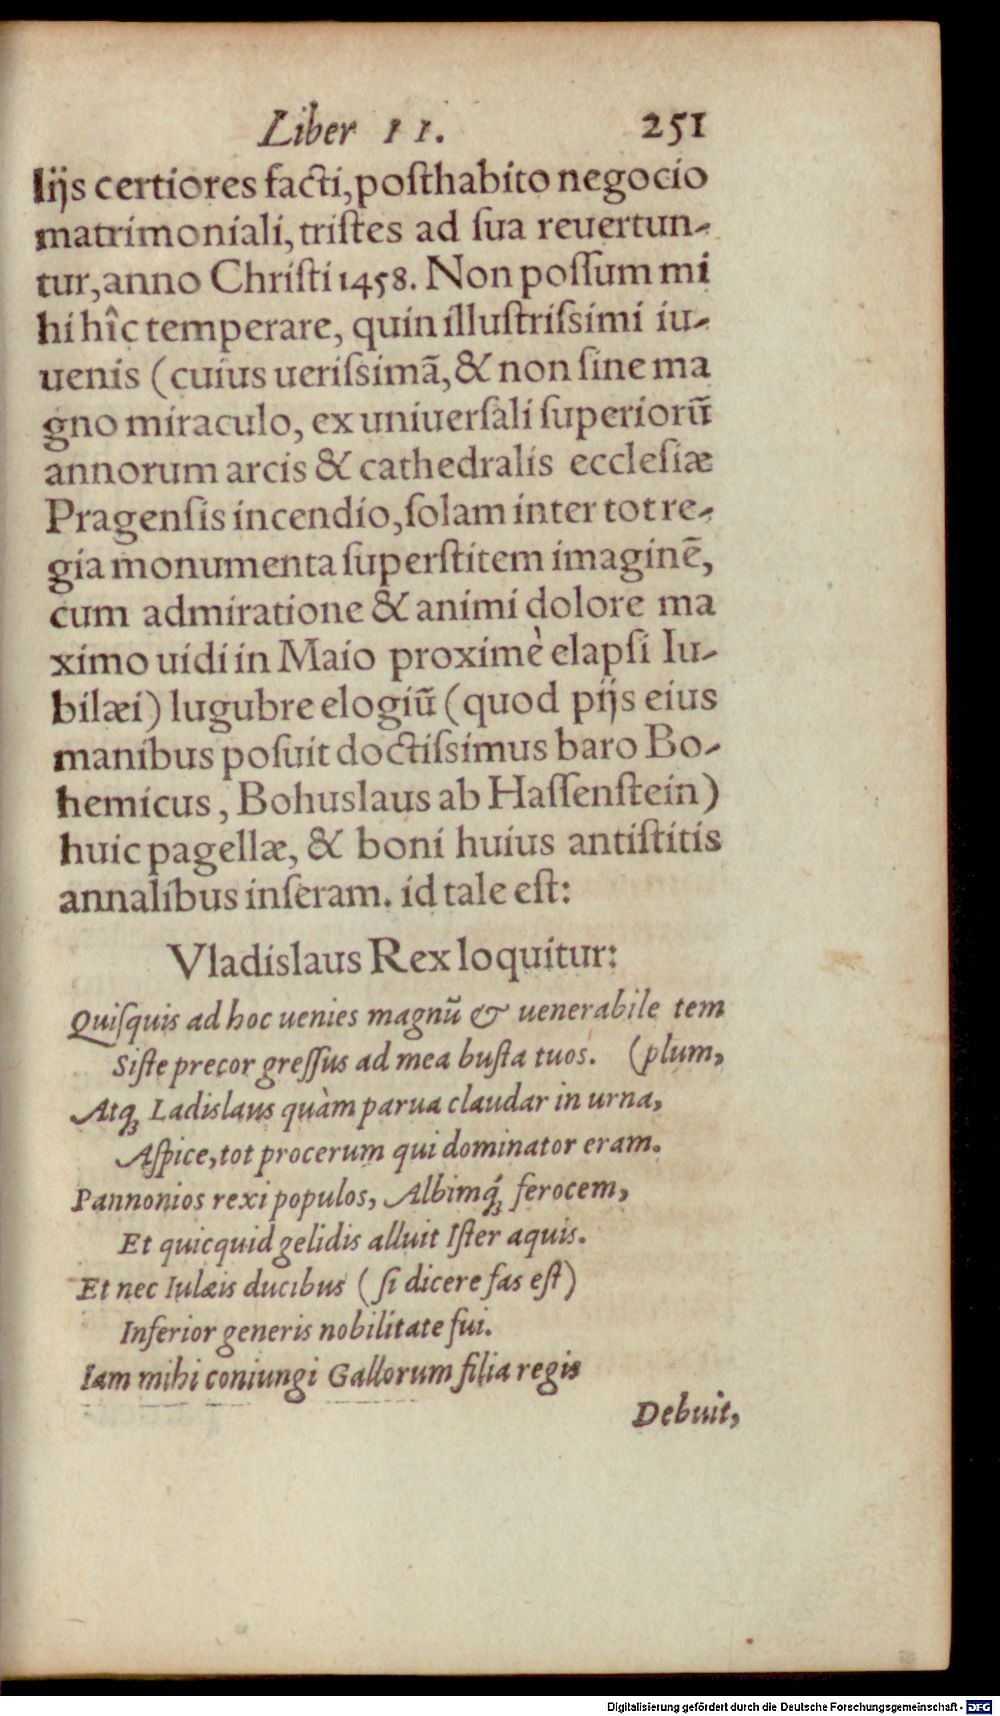 Liber II. 251
lijs certiores facti, posthabito negocio
matrimoniali, tristes ad sua reuertun-
tur, anno Christi 1458. Non possum mi
hi hîc temperare, quin illustrissimi iu-
uenis (cuius uerissimã, & non sine ma
gno miraculo, ex uniuersali superiorũ
annorum arcis & cathedralis ecclesiæ
Pragensis incendio, solam inter tot re-
gia monumenta superstitem imaginẽ,
cum admiratione & animi dolore ma
ximo uidi in Maio proximè elapsi Iu-
bilæi) lugubre elogiũ (quod pijs eius
manibus posuit doctissimus baro Bo-
hemicus, Bohuslaus ab Hassenstein)
huic pagellæ, & boni huius antistitis
annalibus inseram. id tale est:
Vladislaus Rex loquitur:
Quisquis ad hoc uenies magnũ & uenerabile tem
Siste precor gressus ad mea busta tuos. (plum,
Atq; Ladislaus quàm parua claudar in urna,
Aspice, tot procerum qui dominator eram.
Pannonios rexi populos, Albimq́; ferocem,
Et quicquid gelidis alluit Ister aquis.
Et nec Iulæis ducibus (si dicere fas est)
Inferior generis nobilitate fui.
Iam mihi coniungi Gallorum filia regis
Debuit,
Digitalisierung gefördert durch die Deutsche Forschungsgemeinschaft - DFG